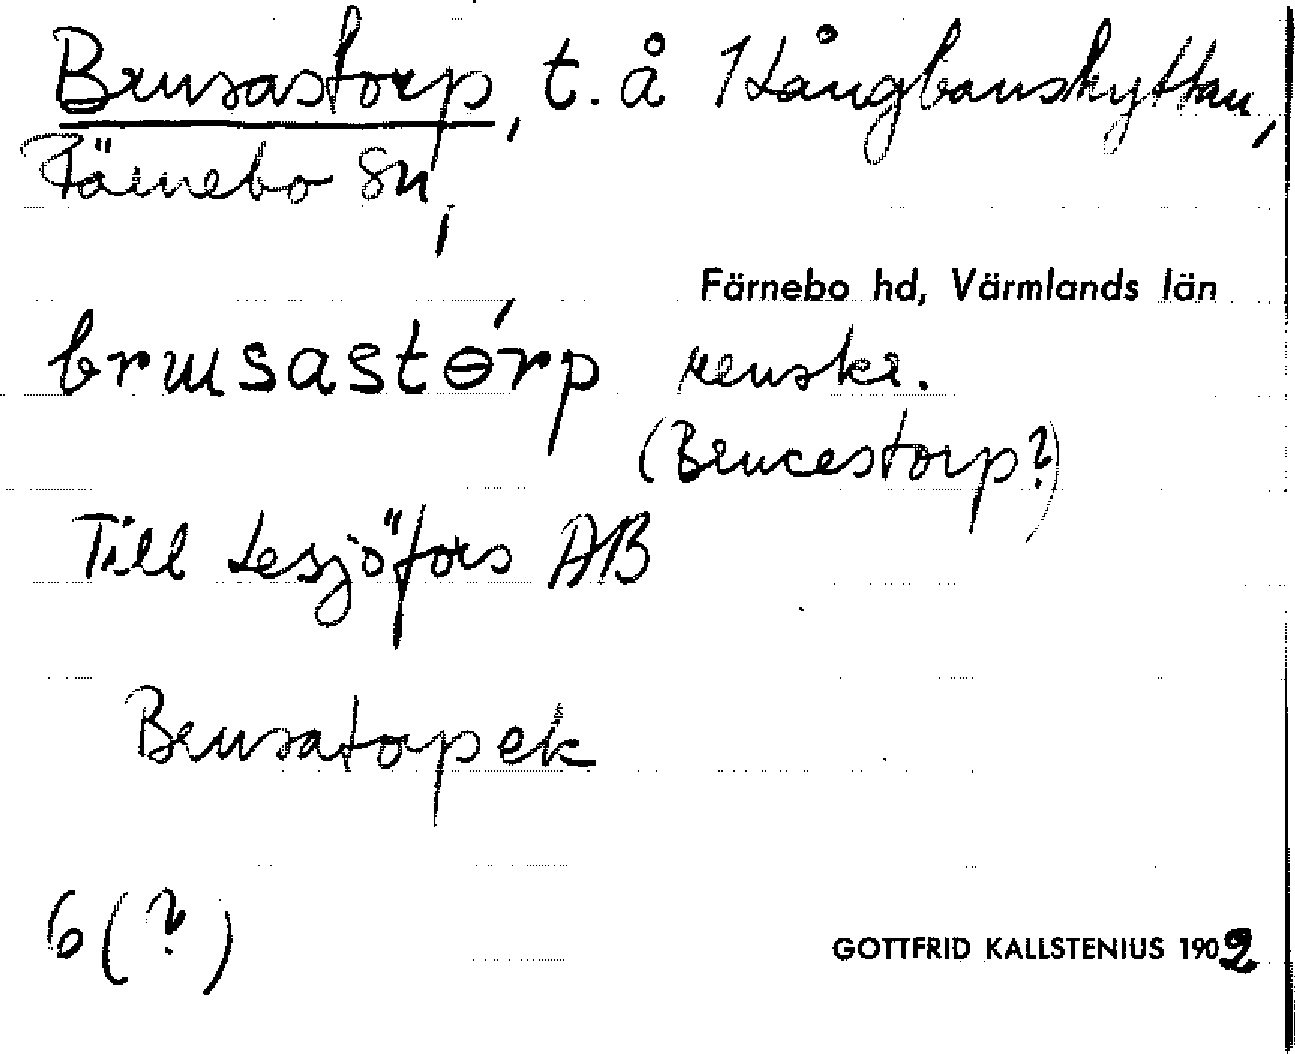 Brusastorp, t. å Långbanshyttan,
Färnebo sn,
Färnebo hd, Värmlands län
brusastɵ́rp
(Brucestorp?)
Till Lesjöfors AB
Brusatorpek
6 (?)
GOTTFRID KALLSTENIUS 1902